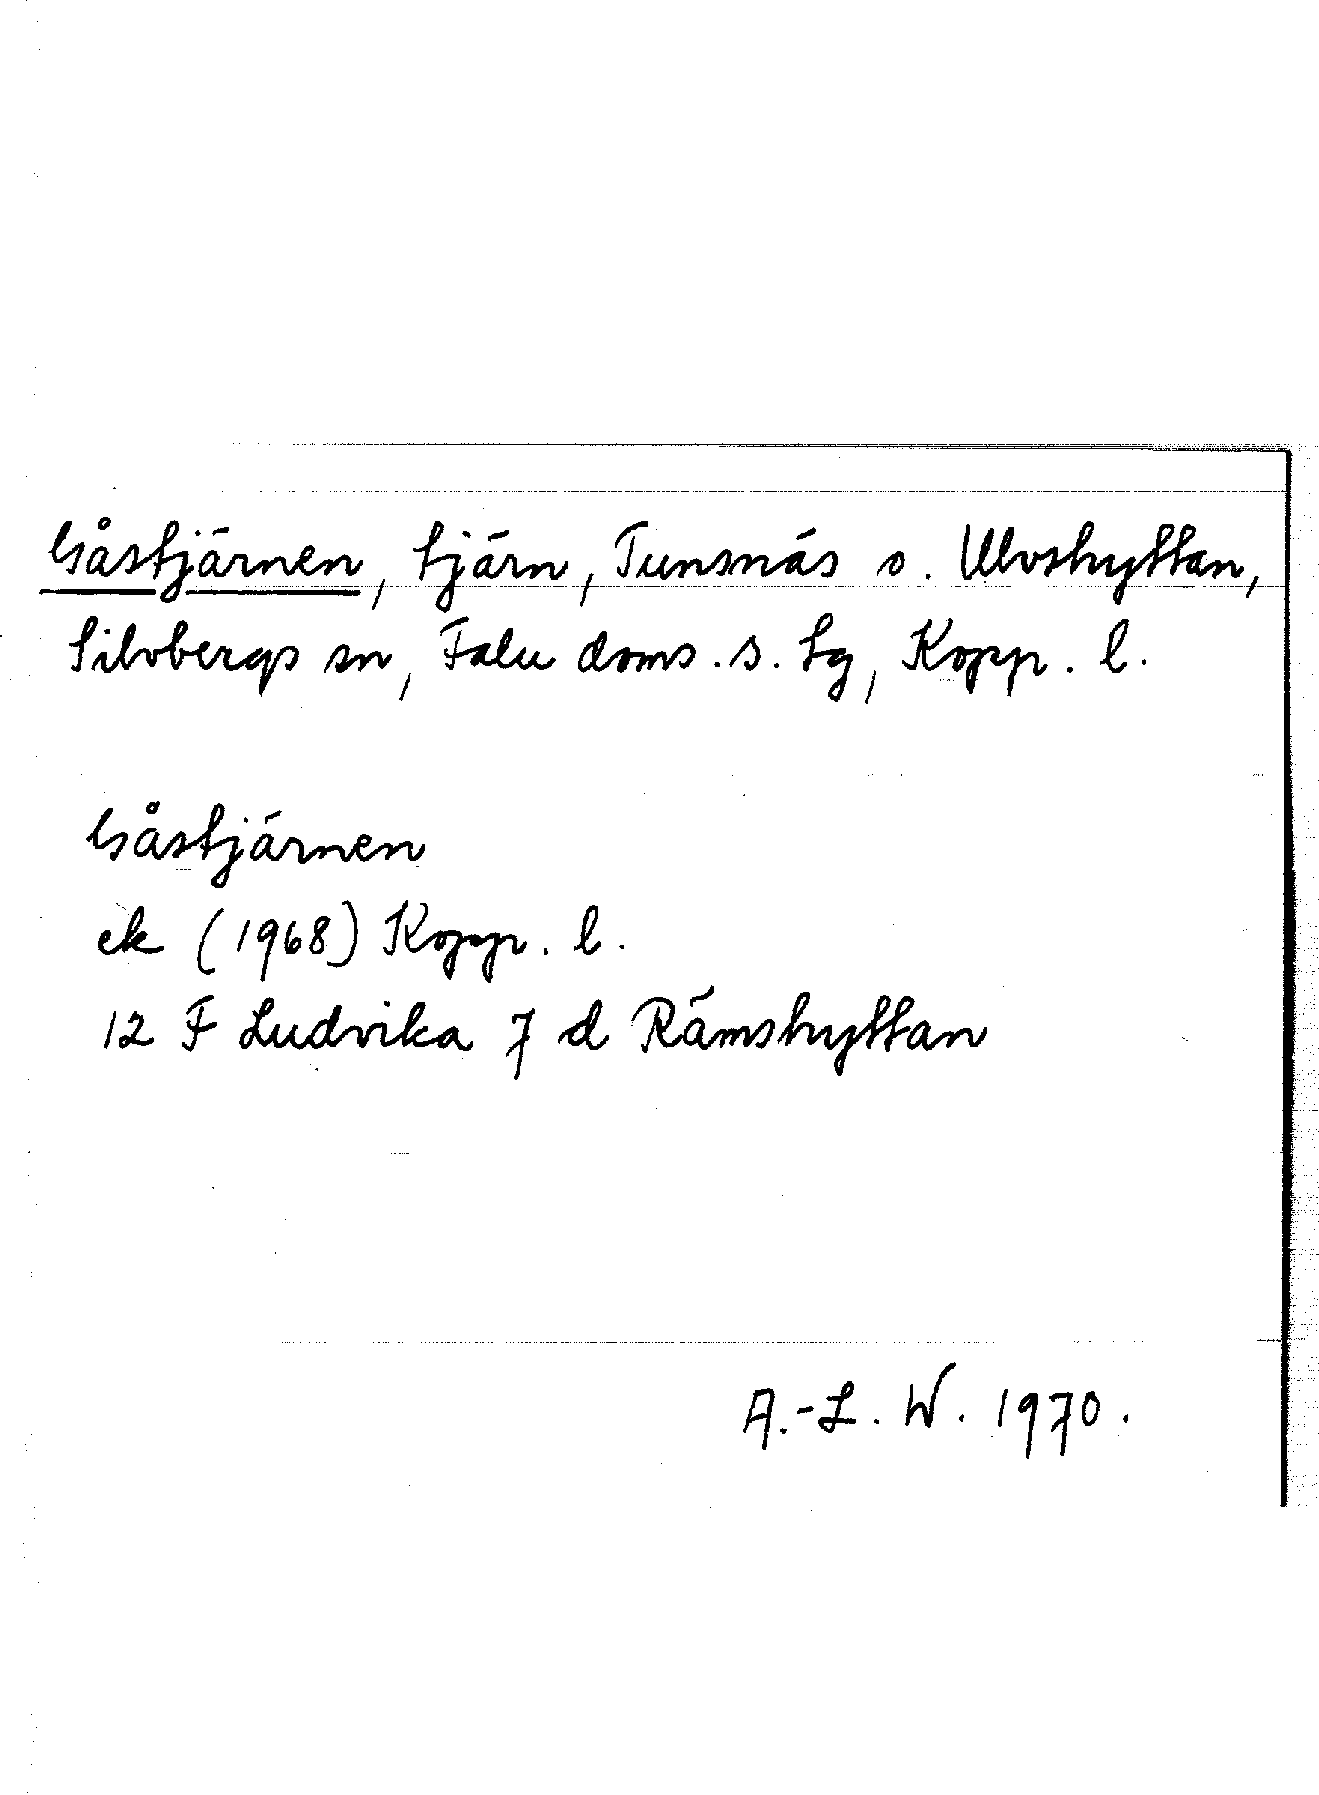 Gåstjärnen, tjärn, Tunsnäs o. Ulvshyttan,
Silvbergs sn, Falu doms. s. tg, Kopp. l.
Gåstjärnen
ek (1968) Kopp. l.
12 F Ludvika 7 d Rämshyttan
A.-L. W. 1970.